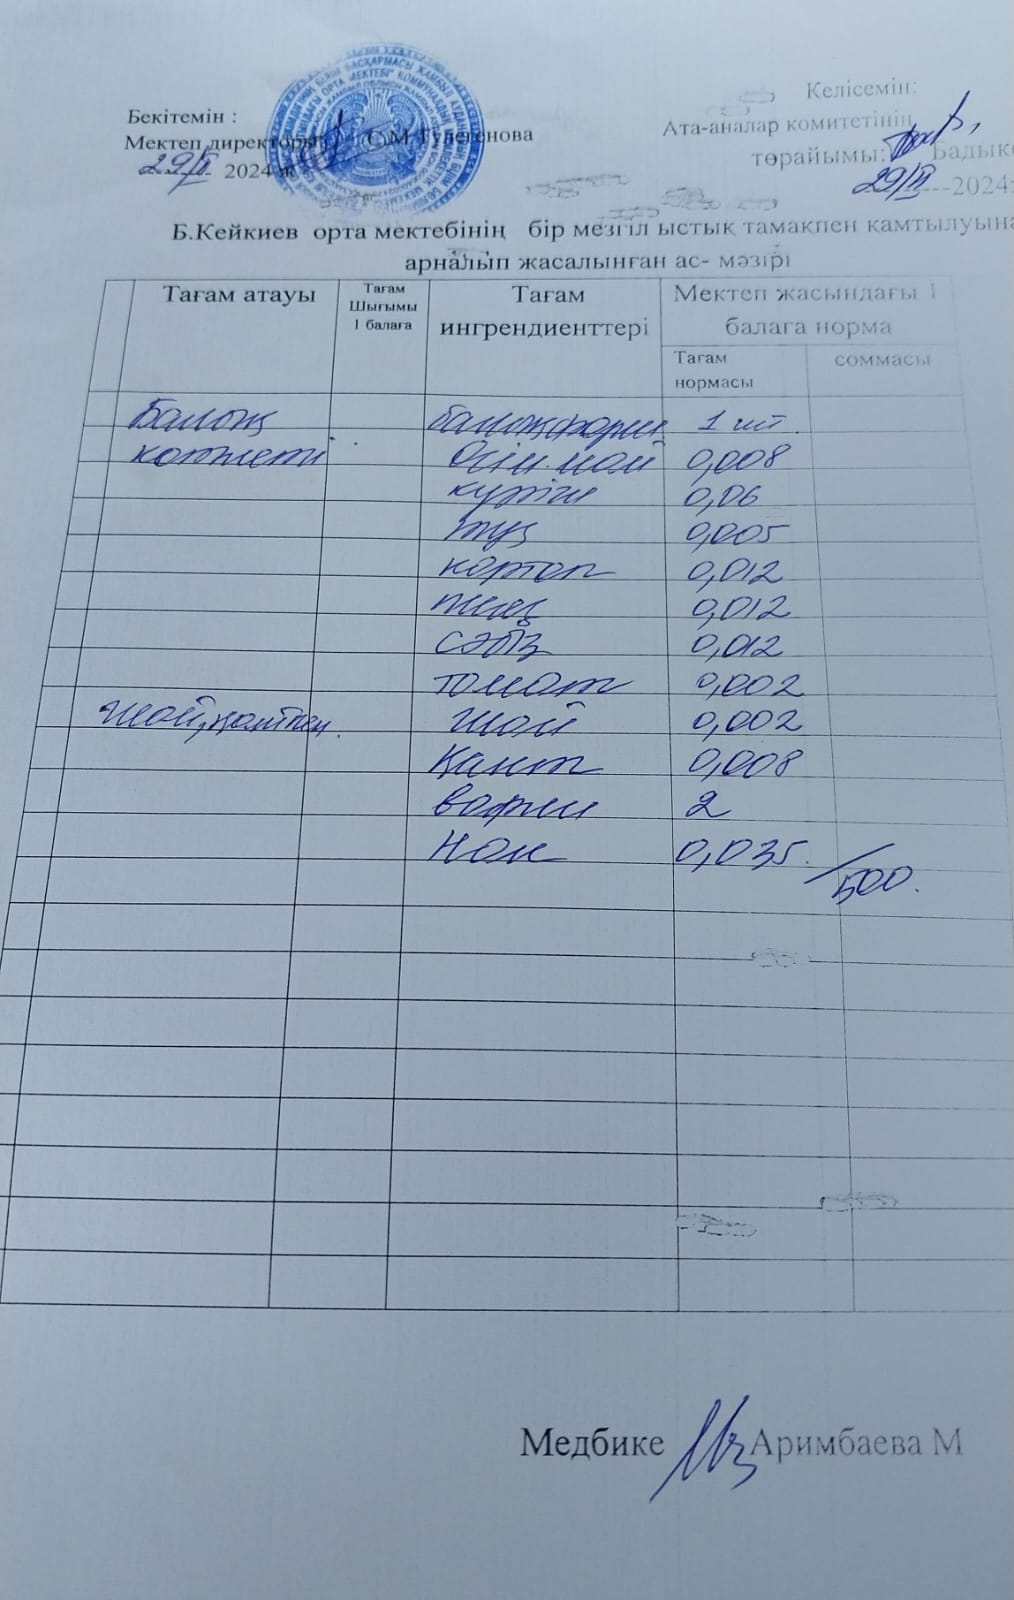 Бекітемін :
Мектеп директоры С.М Тулегенова
29/II 2024 ж
Келісемін:
Ата-аналар комитетінің
төрайымы: Бадык
29/II ----2024
Б.Кейкиев орта мектебінің бір мезгіл ыстық тамақпен қамтылуына
арналып жасалынған ас- мәзірі
Тағам атауы
Тағам
Шығымы
1 балаға
Тағам
ингрендиенттері
Мектеп жасындағы 1
балаға норма
Тағам
нормасы
соммасы
Балық 1 шт.
котлеті Өсім. май 0,008
күріш 0,06
тұз 0,005
картоп 0,012
пияз 0,012
сәбіз 0,012
томат 0,002
Шай, қантпен. шай 0,002
Қант 0,008
вафли 2
Нан 0,035. /500.
Медбике Аримбаева М